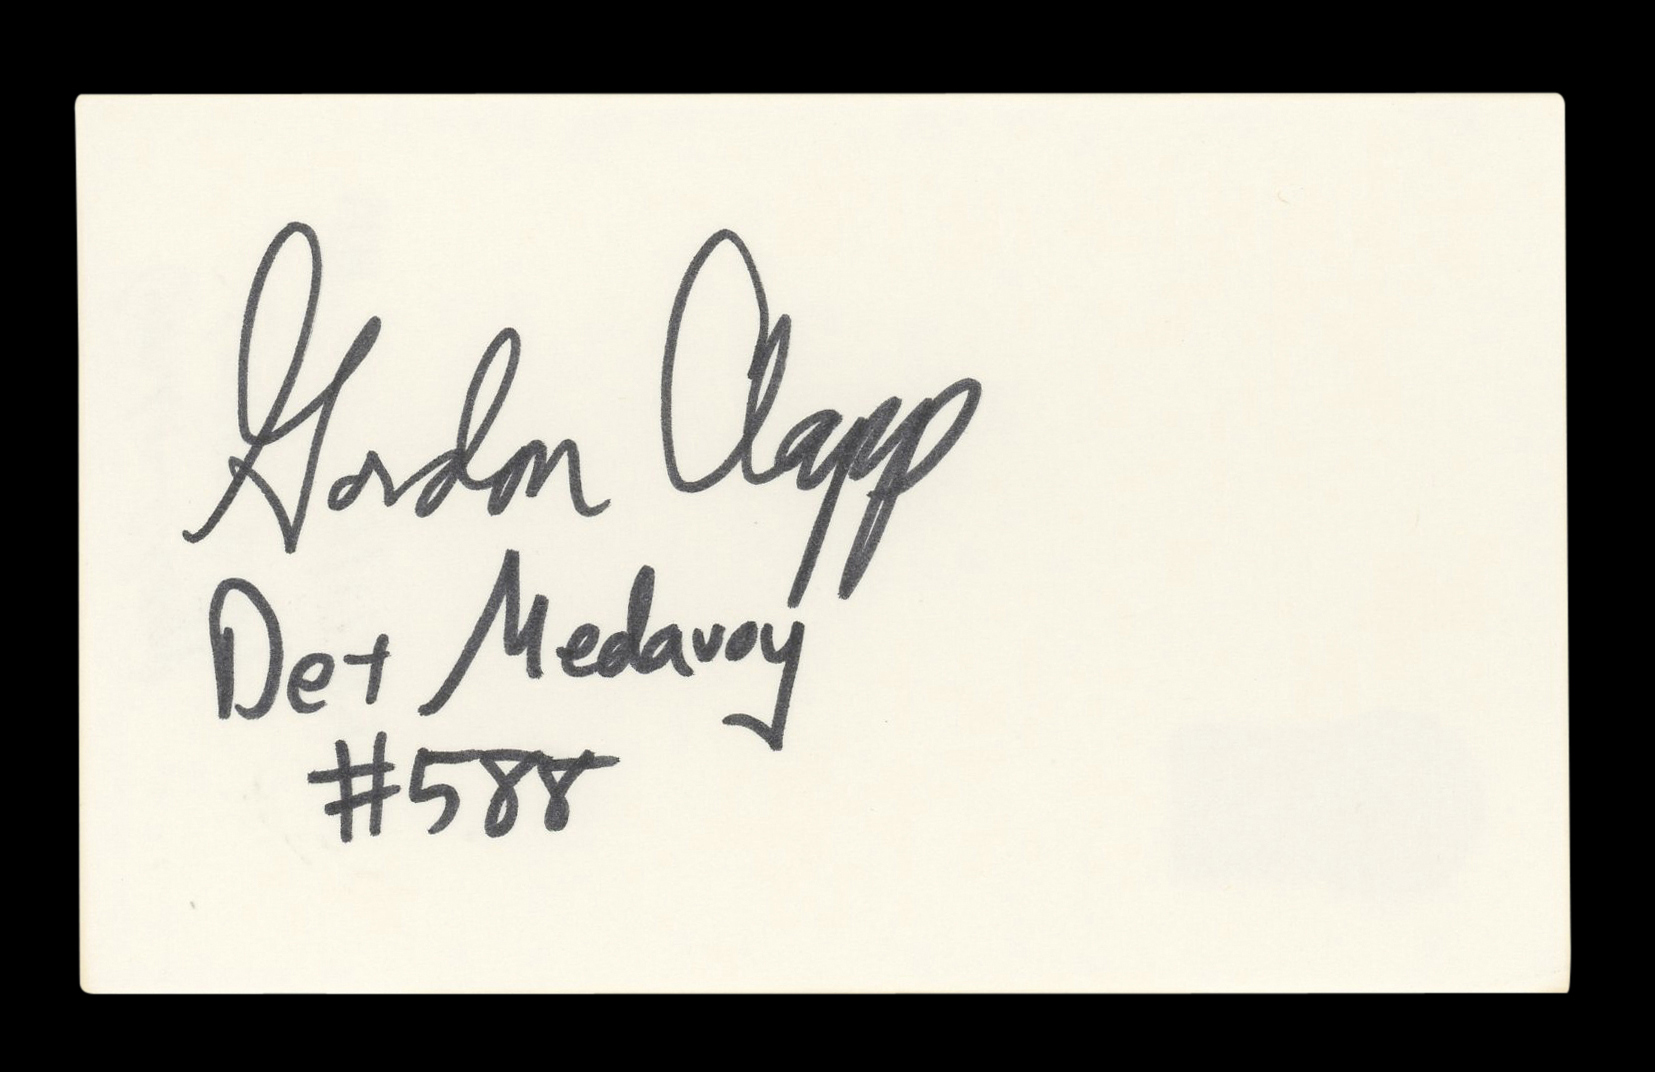 Gordon Clapp
Det Medavoy
#588